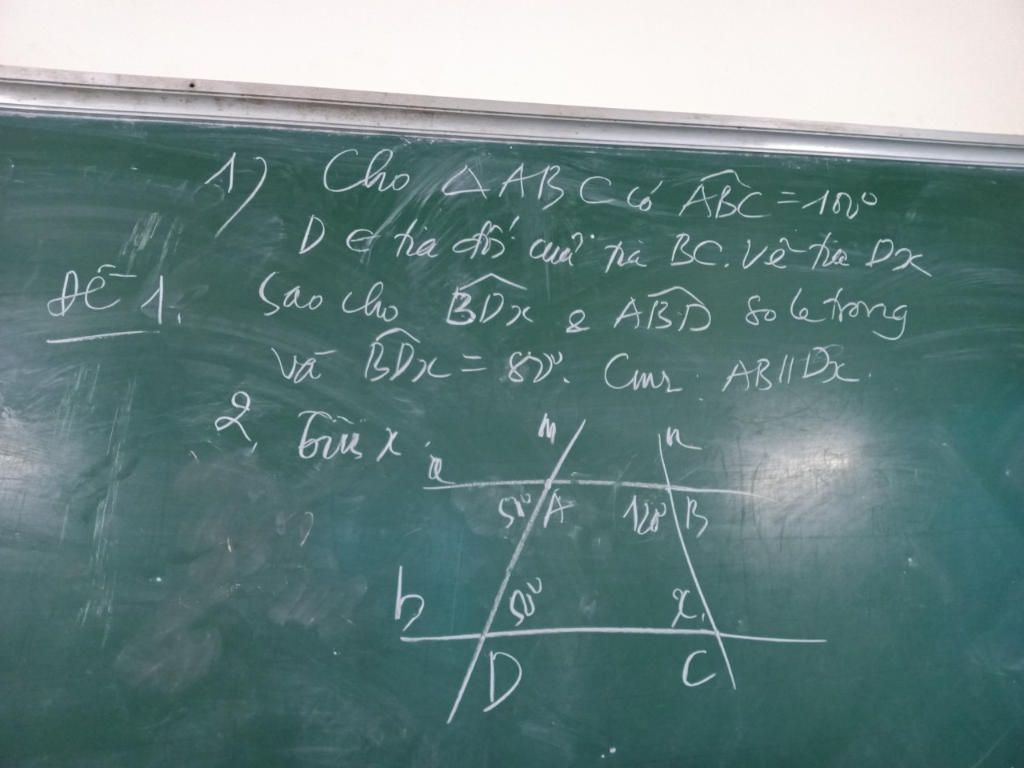 1) Cho △ABC có ABC = 100°
D ∈ tia đối của tia BC. Vẽ tia Dx
ĐỀ 1. Sao cho BDx & ABD so le trong
và BDx = 80°. Cmr AB // Dx.
2, Tìm x.
m n
a
50° A 120° B
b 50° x
D C